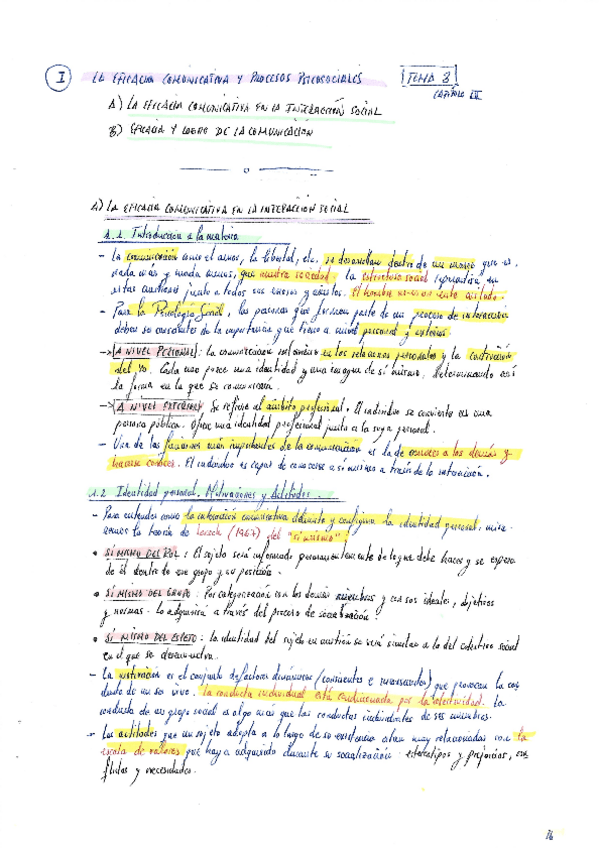 I LA EFICACIA COMUNICATIVA Y PROCESOS PSICOSOCIALES TEMA 3
CAPÍTULO III
A) LA EFICACIA COMUNICATIVA EN LA INTERACCIÓN SOCIAL
B) EFICACIA Y LOGRO DE LA COMUNICACIÓN
A) LA EFICACIA COMUNICATIVA EN LA INTERACCION SOCIAL
1.1. Introducción a la materia
- La comunicación como el amor, la libertad, etc. se desarrollan dentro de un marco que es
nada más y nada menos, que nuestra sociedad. la estructura social
cuestiones junto a todos sus . El hombre no es un ente aislado.
- Para la Psicología Social, las personas que forman parte de un proceso de interacción
deben ser conscientes de la importancia que tiene a nivel personal y externo.
-> A NIVEL PERSONAL: la comunicación en las relaciones personales y la construcción
del yo. Cada uno posee una identidad y una imagen de sí mismo. Determinando así
la forma en la que se comunicará.
-> A NIVEL EXTERNO: Se refiere al ámbito profesional. El individuo se convierte en una
persona pública. Ofrece una identidad profesional junto a la suya personal.
- Una de las funciones más importantes de la comunicación es la de conocer a los demás y
hacerse conocer. El individuo es capaz de conocerse a sí mismo a través de la interacción.
1.2 Identidad personal, Motivaciones y Actitudes.
- Para entender como la interacción comunicativa delimita y configura la identidad personal,
la teoría de (1967) del "sí mismo":
• SÍ MISMO DEL ROL: El sujeto será informado permanentemente de lo que debe hacer y se espera
de él dentro de ese grupo y su posición.
• SÍ MISMO DEL GRUPO: Por categorización con los demás miembros y con sus ideales, objetivos
y normas. Lo adquirirá a través del proceso de socialización.
• SÍ MISMO DEL : la identidad del sujeto en cuestión se verá similar a la del colectivo social
en el que se desenvuelva.
- La motivación es el conjunto de factores dinámicos (conscientes e inconscientes) que provocan la con
ducta de un ser vivo. la conducta individual está condicionada por la colectividad. La
conducta de un grupo social es algo más que las conductas individuales de sus miembros.
- Las actitudes que un sujeto adopta a lo largo de su existencia están muy relacionadas con la
escala de valores que haya adquirido durante su socialización: estereotipos y prejuicios, con
flictos y necesidades.
16